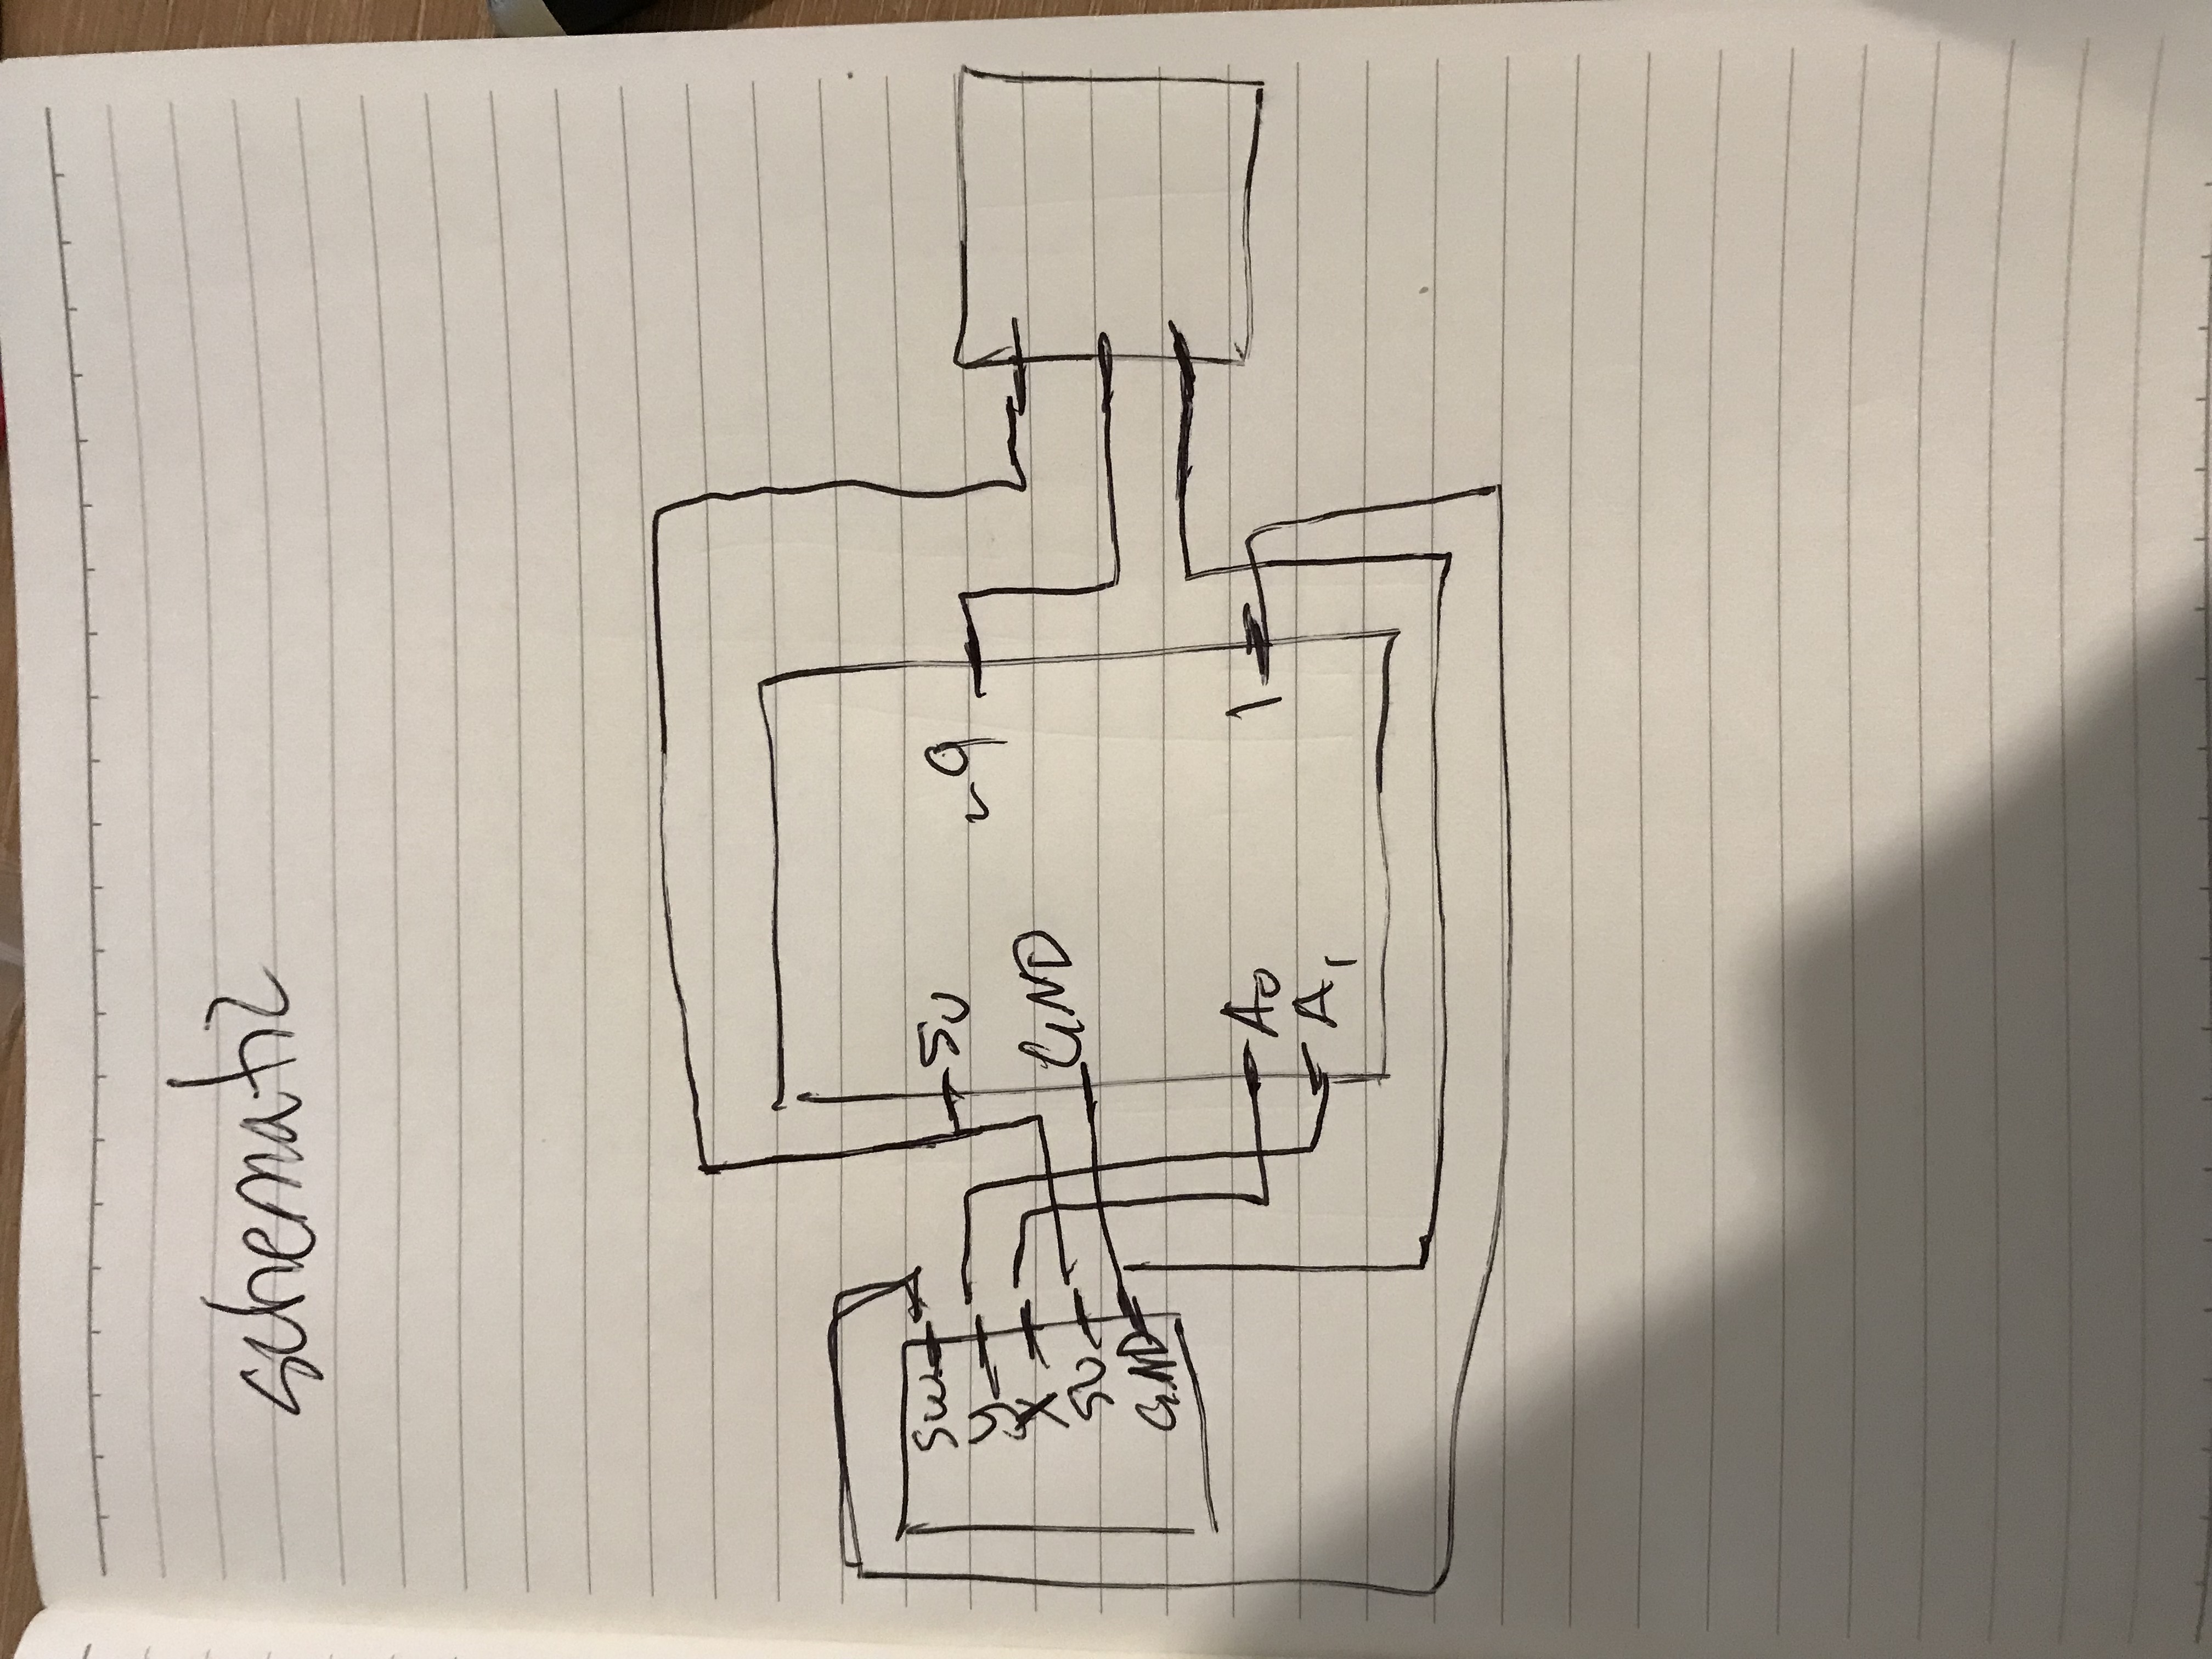 schematic
SW
Y
X
5V
GND
5V
GND
A0
A1
~9
1